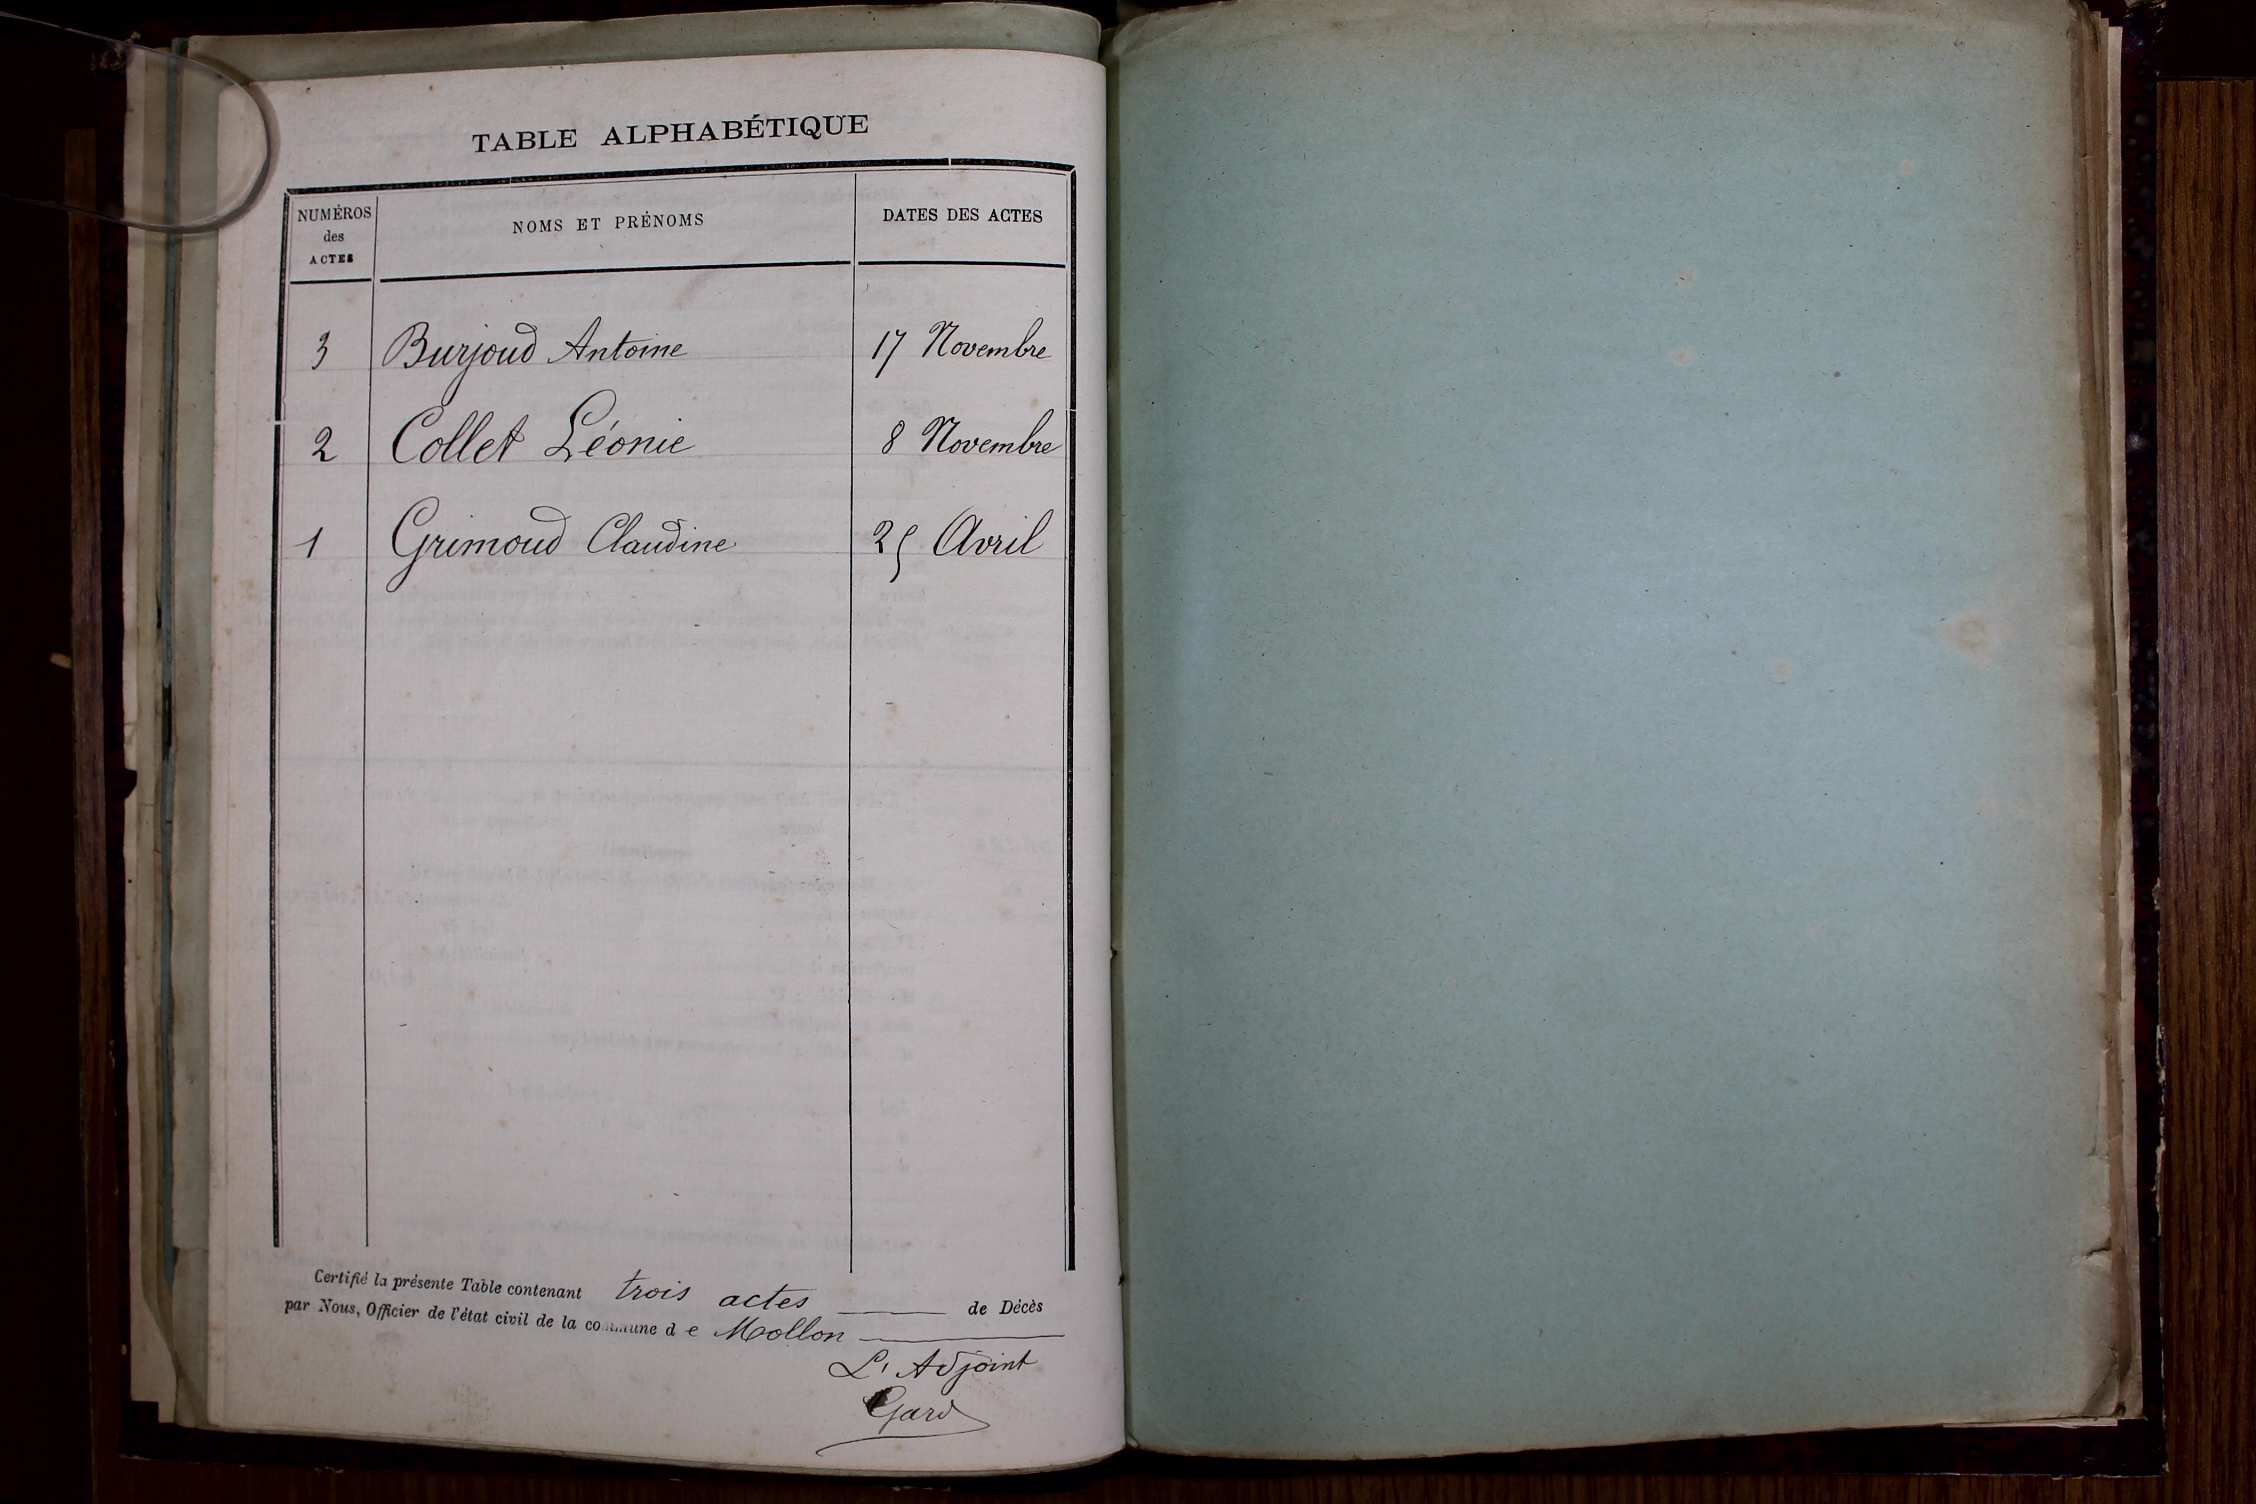 TABLE ALPHABÉTIQUE
NUMÉROS des ACTES NOMS ET PRÉNOMS DATES DES ACTES
3 Burjoud Antoine 17 Novembre
2 Collet Léonie 8 Novembre
1 Grimoud Claudine 25 Avril
Certifié la présente Table contenant trois actes de Décès
par Nous, Officier de l'état civil de la commune de Mollon
L'Adjoint
Gard